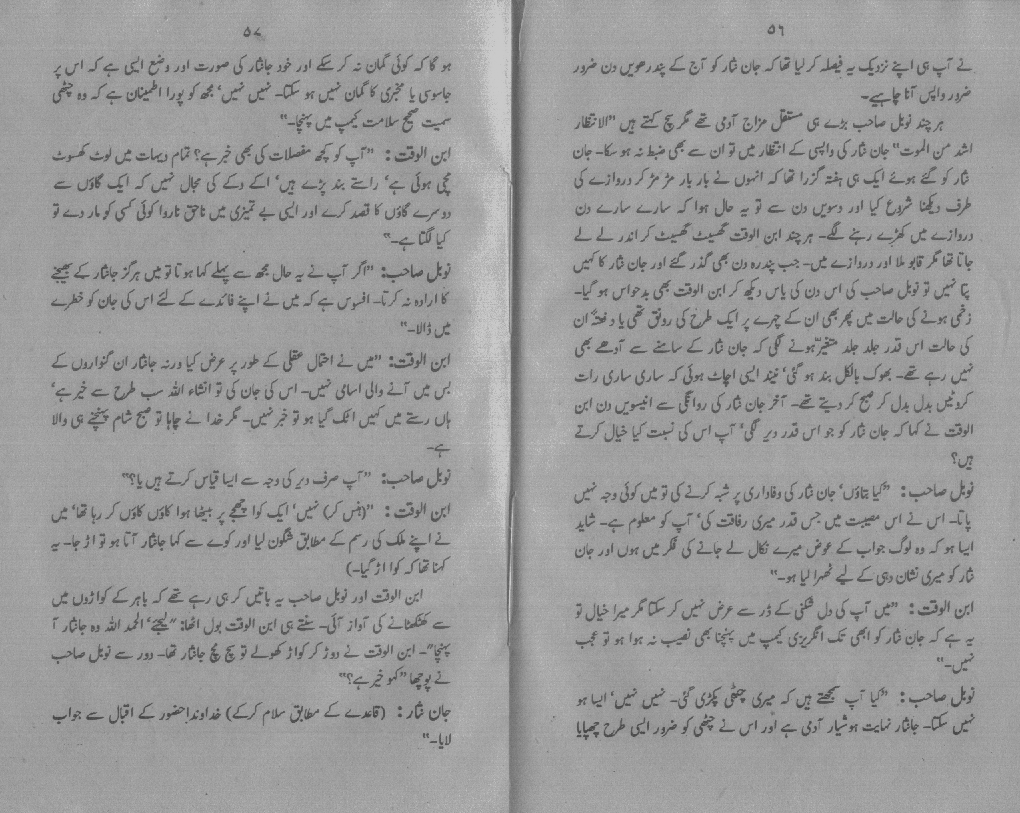 ۵۶
نے آپ ہی اپنے نزدیک یہ فیصلہ کر لیا تھا کہ جان نثار کو آج کے پندرھویں دن ضرور
ضرور واپس آنا چاہیے۔
ہر چند نوبل صاحب بڑے ہی مستقل مزاج آدمی تھے مگر سچ کہتے ہیں "الانتظار
اشد من الموت" جان نثار کی واپسی کے انتظار میں تو ان سے بھی ضبط نہ ہو سکا۔ جان
نثار کو گئے ہوئے ایک ہی ہفتہ گزرا تھا کہ انہوں نے بار بار مڑ مڑ کر دروازے کی
طرف دیکھنا شروع کیا اور دسویں دن سے تو یہ حال ہوا کہ سارے سارے دن
دروازے میں کھڑے رہنے لگے۔ ہر چند ابن الوقت گھسیٹ گھسیٹ کر اندر لے لے
جاتا تھا مگر قابو ملا اور دروازے میں۔ جب پندرہ دن بھی گذر گئے اور جان نثار کا کہیں
پتا نہیں تو نوبل صاحب کی اس دن کی یاس دیکھ کر ابن الوقت بھی بدحواس ہو گیا۔
زخمی ہونے کی حالت میں پھر بھی ان کے چہرے پر ایک طرح کی رونق تھی یا دفعتہً ان
کی حالت اس قدر جلد جلد متغیر ہونے لگی کہ جان نثار کے سامنے سے آدھے بھی
نہیں رہے تھے۔ بھوک بالکل بند ہو گئی، نیند ایسی اچاٹ ہوئی کہ ساری ساری رات
کروٹیں بدل بدل کر صبح کر دیتے تھے۔ آخر جان نثار کی روانگی سے انیسویں دن ابن
الوقت نے کہا کہ جان نثار کو جو اس قدر دیر لگی، آپ اس کی نسبت کیا خیال کرتے
ہیں؟
نوبل صاحب: "کیا بتاؤں، جان نثار کی وفاداری پر شبہ کرنے کی تو میں کوئی وجہ نہیں
پاتا۔ اس نے اس مصیبت میں جس قدر میری رفاقت کی، آپ کو معلوم ہے۔ شاید
ایسا ہو کہ وہ لوگ جواب کے عوض میرے نکال لے جانے کی فکر میں ہوں اور جان
نثار کو میری نشان دہی کے لیے ٹھہرا لیا ہو۔"
ابن الوقت: "میں آپ کی دل شکنی کے ڈر سے عرض نہیں کر سکتا مگر میرا خیال تو
یہ ہے کہ جان نثار کو ابھی تک انگریزی کیمپ میں پہنچنا بھی نصیب نہ ہوا ہو تو عجب
نہیں۔"
نوبل صاحب: "کیا آپ سمجھتے ہیں کہ میری چٹھی پکڑی گئی۔ نہیں نہیں، ایسا ہو
نہیں سکتا۔ جانثار نہایت ہوشیار آدمی ہے اور اس نے چٹھی کو ضرور ایسی طرح چھپایا
۵۷
ہو گا کہ کوئی گمان نہ کر سکے اور خود جانثار کی صورت اور وضع ایسی ہے کہ اس پر
جاسوسی یا مخبری کا گمان نہیں ہو سکتا۔ نہیں نہیں، مجھ کو پورا اطمینان ہے کہ وہ چٹھی
سمیت صحیح سلامت کیمپ میں پہنچا۔"
ابن الوقت: "آپ کو کچھ مفصلات کی بھی خبر ہے؟ تمام دیہات میں لوٹ کھسوٹ
مچی ہوئی ہے، راستے بند پڑے ہیں، اکے دکے کی مجال نہیں کہ ایک گاؤں سے
دوسرے گاؤں کا قصد کرے اور ایسی بے تمیزی میں ناحق ناروا کوئی کسی کو مار دے تو
کیا لگتا ہے۔"
نوبل صاحب: "اگر آپ نے یہ حال مجھ سے پہلے کہا ہوتا تو میں ہرگز جانثار کے بھیجنے
کا ارادہ نہ کرتا۔ افسوس ہے کہ میں نے اپنے فائدے کے لئے اس کی جان کو خطرے
میں ڈالا۔"
ابن الوقت: "میں نے احتمال عقلی کے طور پر عرض کیا ورنہ جانثار ان گنواروں کے
بس میں آنے والی اسامی نہیں۔ اس کی جان کی تو انشاء اللہ سب طرح سے خیر ہے،
ہاں رستے میں کہیں اٹک گیا ہو تو خبر نہیں۔ مگر خدا نے چاہا تو صبح شام پہنچنے ہی والا
ہے۔
نوبل صاحب: "آپ صرف دیر کی وجہ سے ایسا قیاس کرتے ہیں یا؟"
ابن الوقت: "(ہنس کر) نہیں، ایک کوا چھجے پر بیٹھا ہوا کاؤں کاؤں کر رہا تھا، میں
نے اپنے ملک کی رسم کے مطابق شگون لیا اور کوے سے کہا جانثار آتا ہو تو اڑ جا۔ یہ
کہنا تھا کہ کوا اڑ گیا۔)
ابن الوقت اور نوبل صاحب یہ باتیں کر ہی رہے تھے کہ باہر کے کواڑوں میں
سے کھٹکھٹانے کی آواز آئی۔ سنتے ہی ابن الوقت بول اٹھا: "لیجئے، الحمد اللہ وہ جانثار آ
پہنچا"۔ ابن الوقت نے دوڑ کر کواڑ کھولے تو سچ مچ جانثار تھا۔ دور سے نوبل صاحب
نے پوچھا "کہو خیر ہے؟"
جان نثار: (قاعدے کے مطابق سلام کرکے) خداوند! حضور کے اقبال سے جواب
لایا۔"